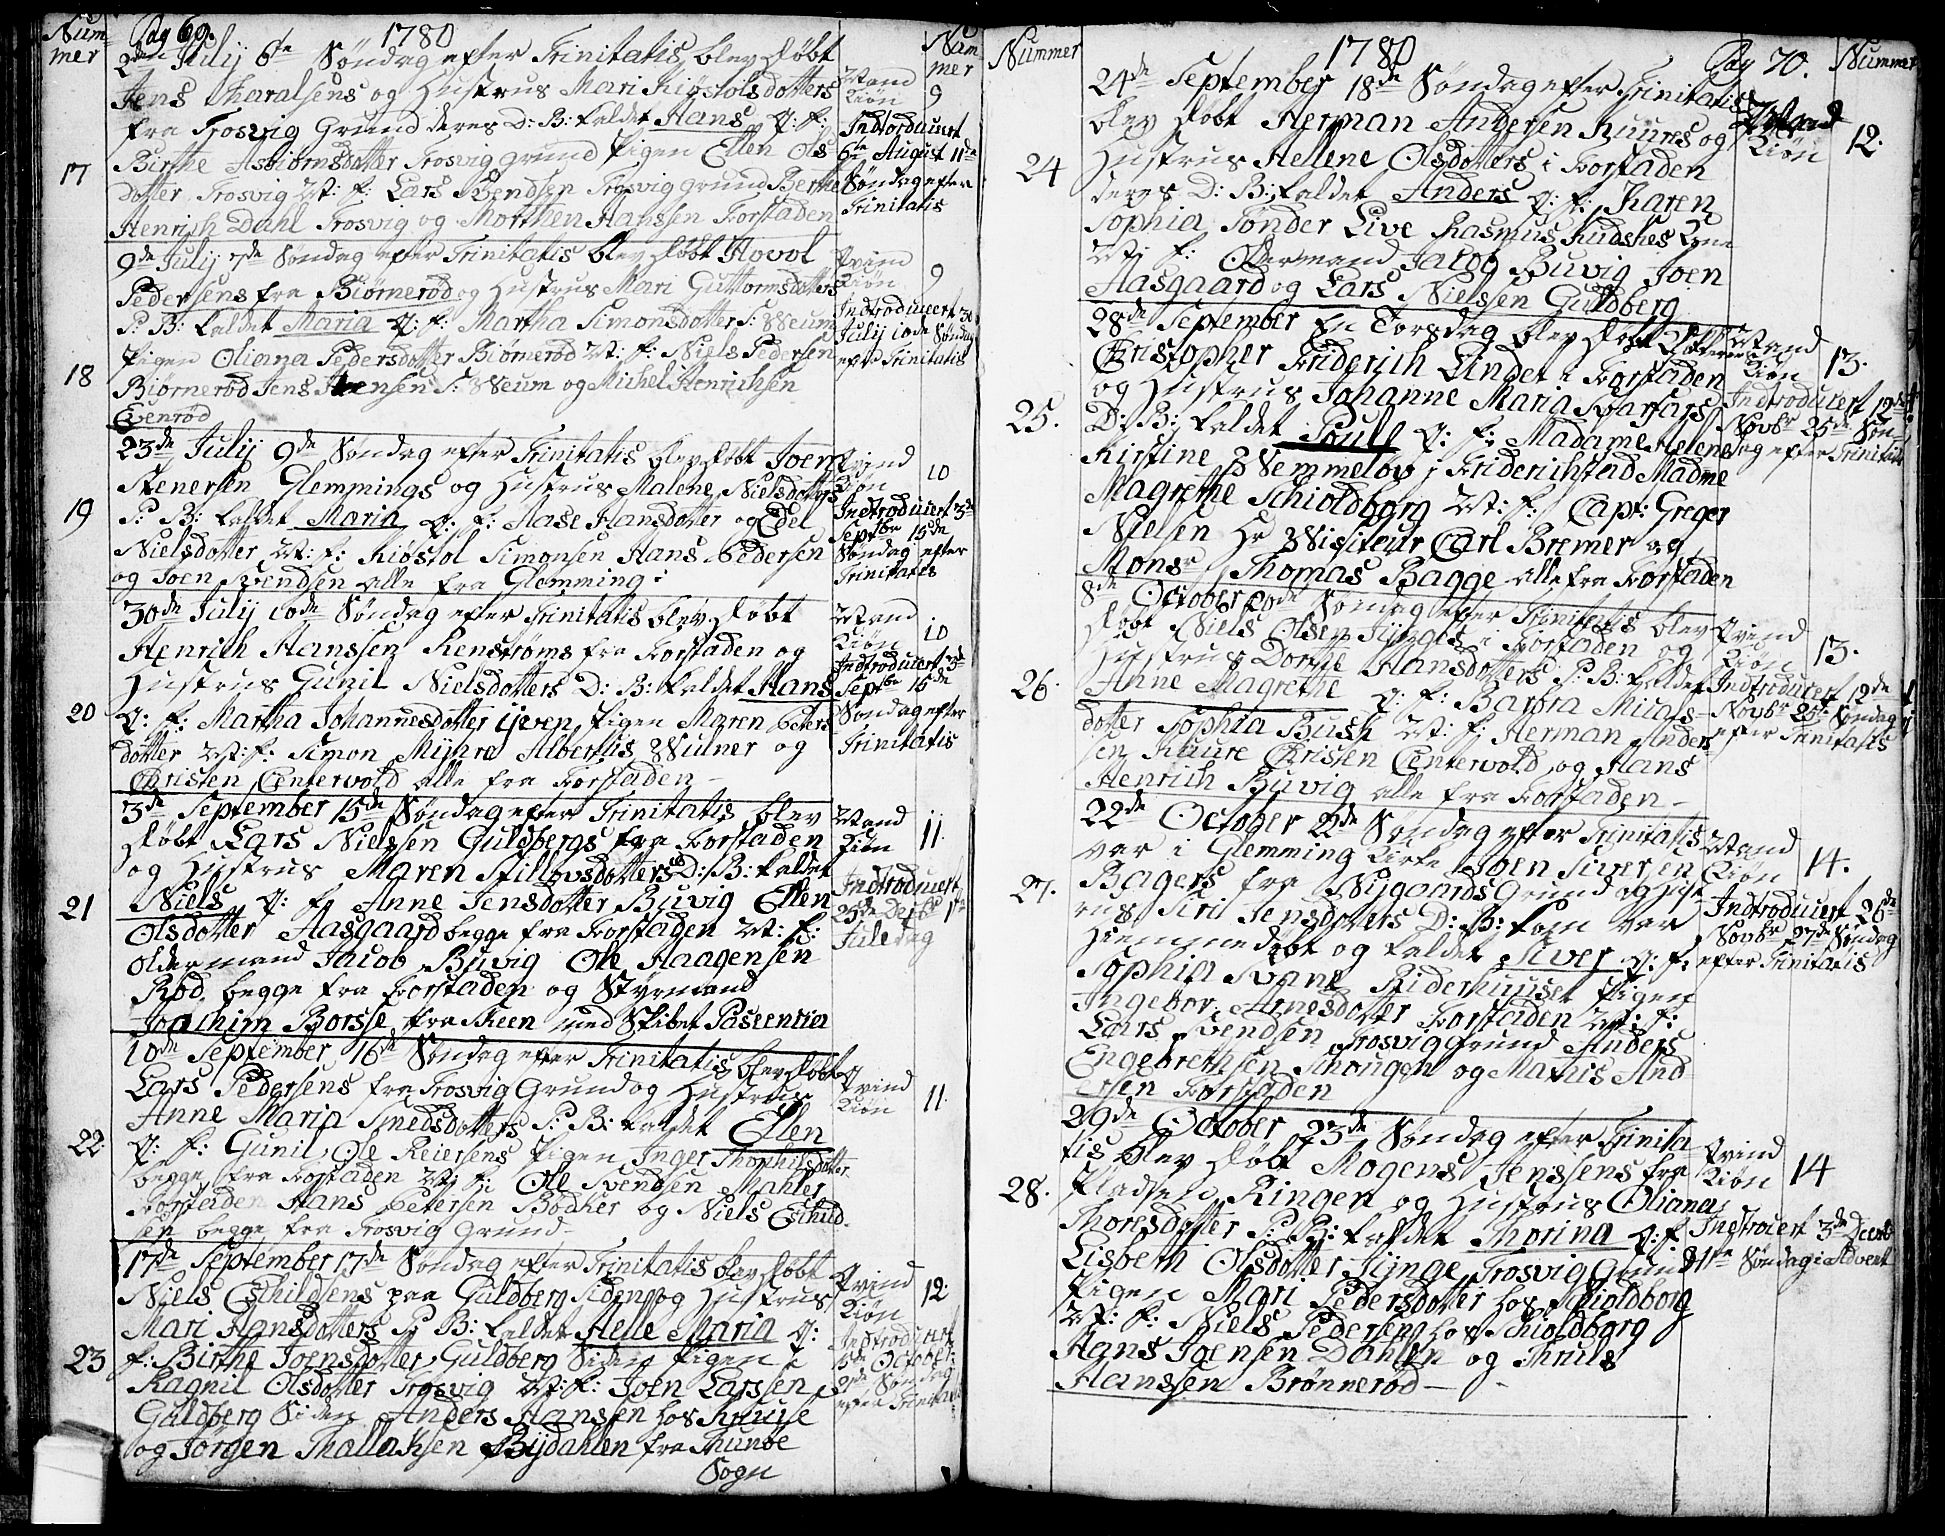 Num
mer
Pag 69.
1780
Num
mer
2den Julij 6te Søndag efter Trinitatis blev døbt
Jens Haralsens og Hustrus Mari Kiøstolsdotters
fra Trosvig Grund deres D: B: kaldet Hans Q: F:
Birthe Asbiørnsdotter Trosvig grund Pigen Ellen Ols
dotter Trosvig M: F: Lars Bendsen Trosvig grund Berthe
Henrich Dahl Trosvig og Morthen Hanssen Forstaden
17
Mand
Kiøn
9
Indtroducert
6te August 11te
Søndag efter
Trinitatis
9de Julij 7de Søndag efter Trinitatis blev døbt Hovol
Pedersens fra Biørnerød og Hustrus Mari Guttormsdotters
P: B: kaldet Maria Q: F: Martha Simonsdotter S: Weum
Pigen Oliana Pedersdotter Biørnerød M: F: Niels Pedersen
Biørnerød Jens Jensen S: Weum og Michel Henrichsen
Evenrød
18
Qvind
Kiøn
9
Indtroducert 30
Julij 10de Søndag
efter Trinitatis
23de Julij 9de Søndag efter Trinitatis blev døbt Joen
Stenersen Glemmings og Hustrus Malene Nielsdotters
P: B: kaldet Maria Q: F: Aase Hansdotter og Edel
Nielsdotter M: F: Kiøstol Simonsen Hans Pedersen
og Joen Svendsen alle fra Glemming
19
Qvind
Kiøn
10
Indtroducert 3de
Septbr 15de
Søndag efter
Trinitatis
30de Julij 10de Søndag efter Trinitatis blev døbt
Henrich Hanssen Renstrøms fra Forstaden og
Hustrus Gunil Nielsdotters D: B: kaldet Hans
Q: F: Martha Johannesdotter ijeven Pigen Maren Peters
dotter M: F: Simon Mimre Albertus Wulner og
Christen Centervold alle fra Forstaden
20
Mand
Kiøn
10
Indtroducert 3de
Septbr 15de
Søndag efter
Trinitatis
3de September 15de Søndag efter Trinitatis blev
døbt Lars Nielsen Guldbergs fra Forstaden
og Hustrus Maren Stillovsdotters D: B: kaldet
Niels Q: F: Anne Jensdotter Buvig Ellen
Olsdotter Aasgaard begge fra Forstaden M: F:
Oldermand Jacob Buvig Ole Haagensen
Rød begge fra Forstaden og Styrmand
Joachim Borsse fra Skeen med Skibet Pascentia
21
Mand
Kiøn
11.
Indtroducert
25de Decbr 1te
Juledag
10de September 16de Søndag efter Trinitatis blev døbt
Lars Pedersens fra Trosvig Grund og Hustrus
Anne Maria Smedsdotters P: B: kaldet Ellen
Q: F: Gunil Ole Reiersens Pigen Inger Thophilsdotter
begge fra Forstaden M: F: Ole Svendsen Mahler
Forstaden Hans Petersen Bødker og Niels Eschild
sen begge fra Trosvig Grund
22
Qvind
Kiøn
11.
17de September 17de Søndag efter Trinitatis blev døbt
Niels Eschildsens paa Guldberg Siden og Hustrus
Mari Hansdotters P: B: kaldet Helle Maria Q:
F: Birthe Joensdotter Guldberg Siden Pigen
Ragnil Olsdotter Trosvig M: F: Joen Larssen
Guldberg Siden Anders Hanssen hos Kruuse
og Jørgen Thallaksen Bijdahlen fra Thunøe
Sogn
23
Qvind
Kiøn
12
Indtroducert
15de October
21de Søndag
efter Trinitatis
Nummer
1780
Pag 70.
Nummer
24de September 18de Søndag efter Trinitatis
blev døbt Herman Andersen Kuures og
Hustrus Hellene Olsdotters i Forstaden
deres D: B: kaldet Anders Q: F: Karen
Sophia Tønder Live Rasmus Kudskes Kone
M: F: Oldermand Jacob Buvig Joen
Aasgaard og Lars Nielsen Guldberg
24
Mand
Kiøn
12.
28de September En Torsdag blev døbt
Christopher Friderich Linde i Forstaden
og Hustrus Johanne Maria Svartzis
D: B: kaldet Poul Q: F: Madame Helene
Kirstine Wemmelov i Friderichstad Madme
Magrethe Schioldborg M: F: Capt: Greger
Nielsen Hr Wisiteur Carl Bremer og
Monsr Thomas Bagge alle fra Forstaden
25.
Mand
Kiøn
13.
Indtroducert 19de
Novbr 25de Søn
dag efter Trinitatis
8de October 20de Søndag efter Trinitatis blev
døbt Niels Olsen Kijnges i Forstaden og
Hustrus Dorthe Hansdotters P: B: kaldet
Anne Magrethe Q: F: Barbra Micals
dotter Sophia Busk M: F: Herman Anders
sen Kuure Christen Centervold og Hans
Henrich Buvig alle fra Forstaden
26.
Qvind
Kiøn
13.
Indtroducert 19de
Novbr 25de Søndag
efter Trinitatis
22de October 22de Søndag efter Trinitatis
var i Glemming Kirke Joen Siversen
Bagers fra Nygaards Grund og Hust
rus Siri Jensdotters D: B: som var
Hiemmedøbt og kaldet Siver Q: F:
Sophia Svane Ridehuuset Pigen
Ingebor Arnesdotter Forstaden M: F:
Lars Svendsen Trosvig Grund Anders
Engebrethsen Skougen og Mathis And
ersen Forstaden
27.
Mand
Kiøn
14.
Indtroducert 26de
Novbr 27de Søndag
efter Trinitatis
29de October 23de Søndag efter Trinita
tis blev døbt Mogens Jenssens fra
Pladsen Ringen og Hustrus Oliana
Thoresdotter P: B: kaldet Thorina Q: F:
Lisbeth Olsdotter Kijnge Trosvig Grund
Pigen Mari Pedersdotter hos Schioldborg
M: F: Niels Pedersen hos Schioldborg
Hans Joensen Dahlen og Truls
Hanssen Brønnerød
28.
Qvind
Kiøn
14
Indtrocert 3de Decbr
1te Søndag i Advent